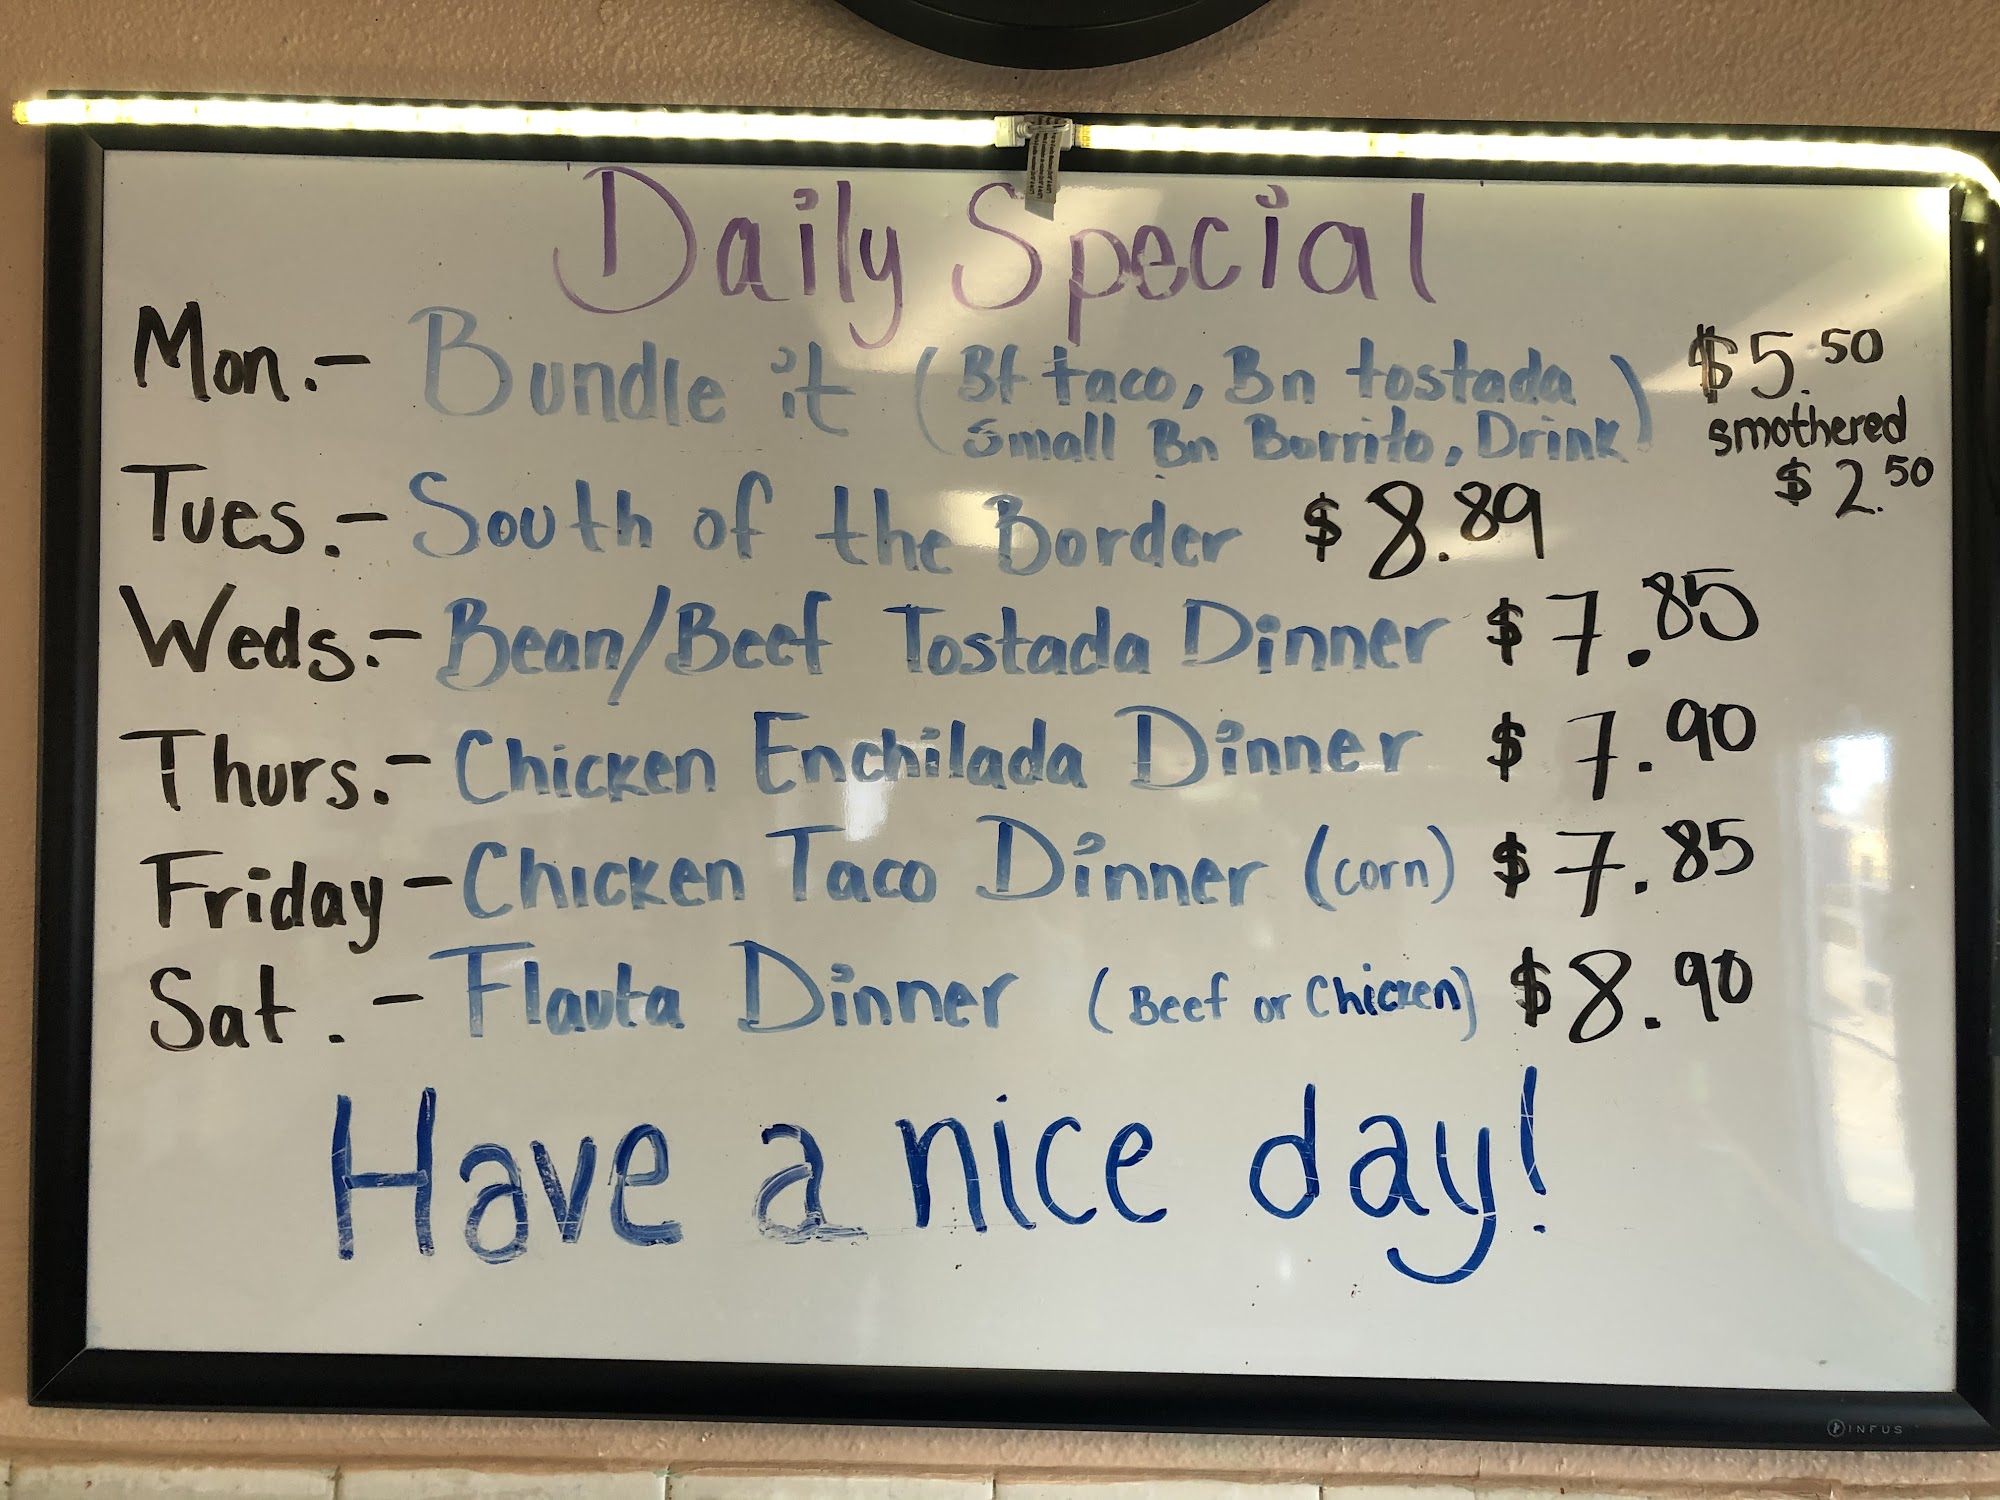 Daily Special
Mon.- Bundle it (Bf taco, Bn tostada $5.50
Small Bn Burrito, Drink) smothered
$2.50
Tues.- South of the Border $8.89
Weds.- Bean/Beef Tostada Dinner $7.85
Thurs.- Chicken Enchilada Dinner $7.90
Friday - Chicken Taco Dinner (corn) $7.85
Sat. - Flauta Dinner (Beef or Chicken) $8.90
Have a nice day!
INFUS